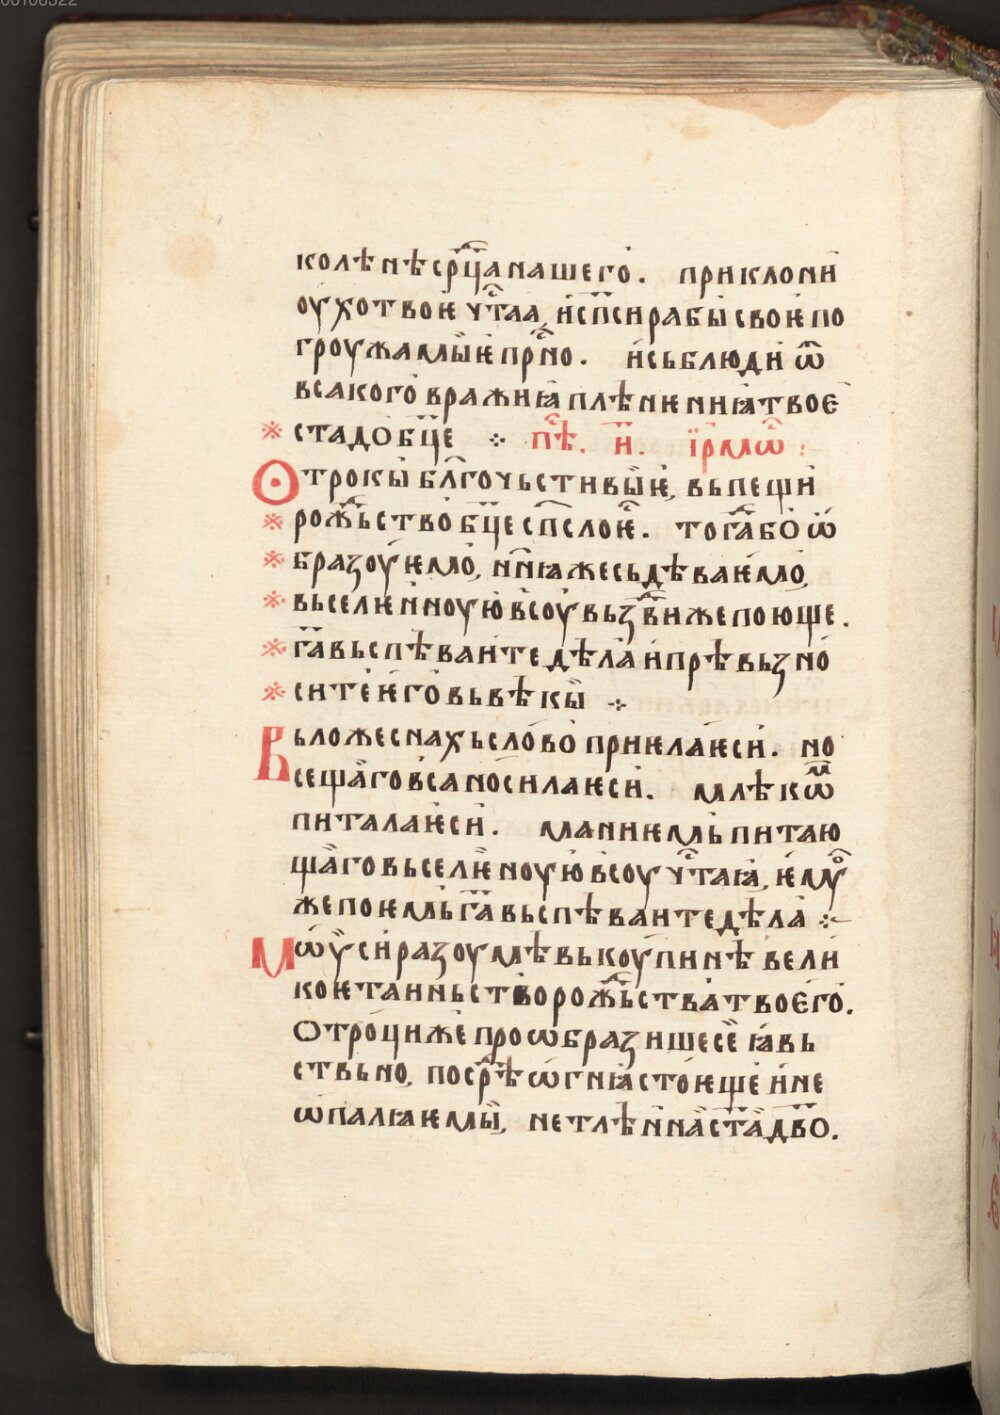 колѣнѣ ср҃ца нашего. приклони
оухо твоѥ чⷭ҇таа, и сп҃си рабы своѥ по
гроужамыѥ прⷭ҇но. и сьблюди ѿ
всакого вражиꙗ плѣнѥниꙗ твоѥ
※ стадо бц҃е ⁘ пⷭ҇ѣ. и҃. їрмⷭ҇ѡ :
Отрокы бл҃гочьстивыѥ, вь пещи
※ рожⷭ҇ьство бц҃е сп҃сло ѥⷭ҇. тогⷣа бо ѡ
※ бразоуѥмо, нн҃ꙗ же сьдѣваѥмо,
※ вьселѥнноую всоу вьзⷣвиже поюще.
※ гⷭ҇а вьспѣваите дѣла и прѣвьзно
※ сите ѥго вь вѣкы ⁘
Вь ложеснахь слово приѥла ѥси. но
сещаго вса носила ѥси. млѣкѡⷨ
питала ѥси. манѥмь питаю
щаго вьселѥноую всоу чⷭ҇таꙗ, ѥмоуⷤ
же поѥмь гⷭ҇а вьспѣваите дѣла ⁘
Мѡѵси разоумѣ вь коупинѣ вели
коѥ таиньство рожⷭ҇ьства твоѥго.
Отроци же проѡбразише се ꙗвь
ствьно, посрⷣѣ ѡгнꙗ стоѥще и не
ѡпалꙗѥмы, нетлѣннаа ст҃аа дв҃о.